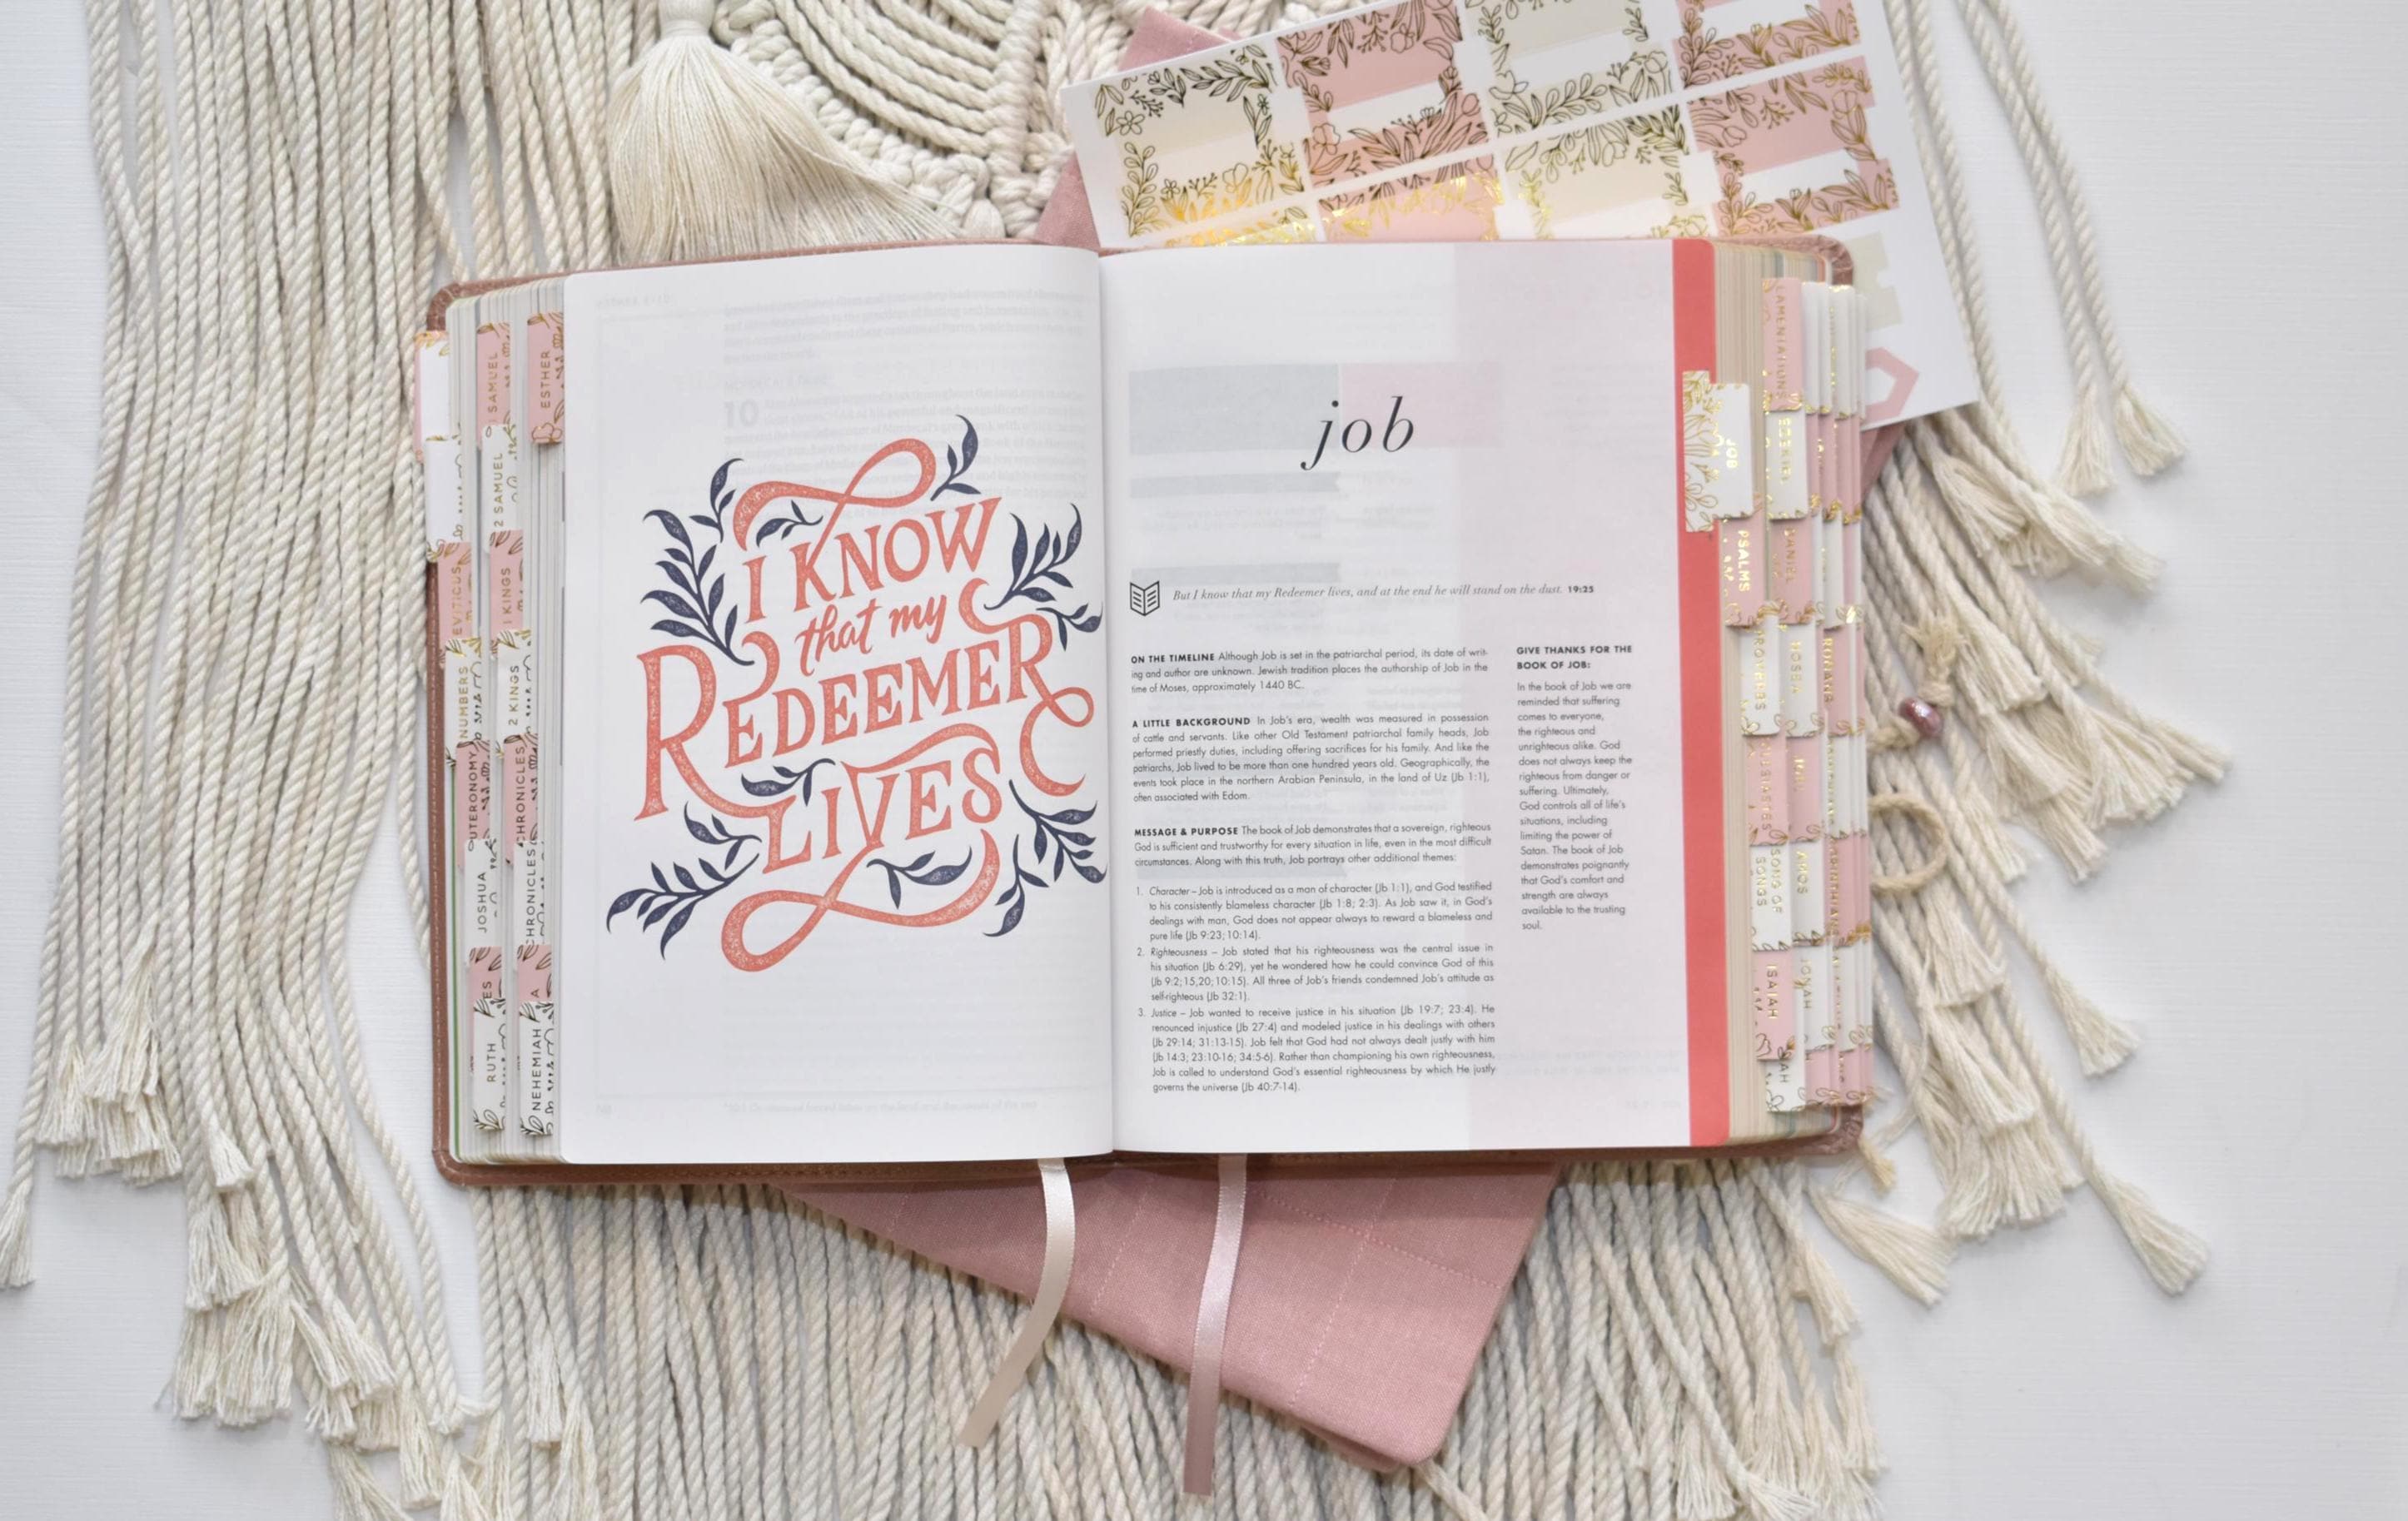 SAMUEL
2 SAMUEL
I KINGS
2 KINGS
CHRONICLES
CHRONICLES
NEHEMIAH
ESTHER
EVITICUS
NUMBERS
UTERONOMY
JOSHUA
ES
RUTH
10
I KNOW
that my
REDEEMER
LIVES
job
But I know that my Redeemer lives, and at the end he will stand on the dust. 19:25
ON THE TIMELINE Although Job is set in the patriarchal period, its date of writ-
ing and author are unknown. Jewish tradition places the authorship of Job in the
time of Moses, approximately 1440 BC.
A LITTLE BACKGROUND In Job's era, wealth was measured in possession
of cattle and servants. Like other Old Testament patriarchal family heads, Job
performed priestly duties, including offering sacrifices for his family. And like the
patriarchs, Job lived to be more than one hundred years old. Geographically, the
events took place in the northern Arabian Peninsula, in the land of Uz (Jb 1:1),
often associated with Edom.
MESSAGE & PURPOSE The book of Job demonstrates that a sovereign, righteous
God is sufficient and trustworthy for every situation in life, even in the most difficult
circumstances. Along with this truth, Job portrays other additional themes:
1. Character – Job is introduced as a man of character (Jb 1:1), and God testified
to his consistently blameless character (Jb 1:8; 2:3). As Job saw it, in God's
dealings with man, God does not appear always to reward a blameless and
pure life (Jb 9:23; 10:14).
2. Righteousness – Job stated that his righteousness was the central issue in
his situation (Jb 6:29), yet he wondered how he could convince God of this
(Jb 9:2; 15,20; 10:15). All three of Job's friends condemned Job's attitude as
self-righteous (Jb 32:1).
3. Justice – Job wanted to receive justice in his situation (Jb 19:7; 23:4). He
renounced injustice (Jb 27:4) and modeled justice in his dealings with others
(Jb 29:14; 31:13-15). Job felt that God had not always dealt justly with him
(Jb 14:3; 23:10-16; 34:5-6). Rather than championing his own righteousness,
Job is called to understand God's essential righteousness by which He justly
governs the universe (Jb 40:7-14).
GIVE THANKS FOR THE
BOOK OF JOB:
In the book of Job we are
reminded that suffering
comes to everyone,
the righteous and
unrighteous alike. God
does not always keep the
righteous from danger or
suffering. Ultimately,
God controls all of life's
situations, including
limiting the power of
Satan. The book of Job
demonstrates poignantly
that God's comfort and
strength are always
available to the trusting
soul.
JOB
PSALMS
SONG OF
SONGS
ISAIAH
DANIEL
HOSEA
AMOS
JONAH
ROMANS